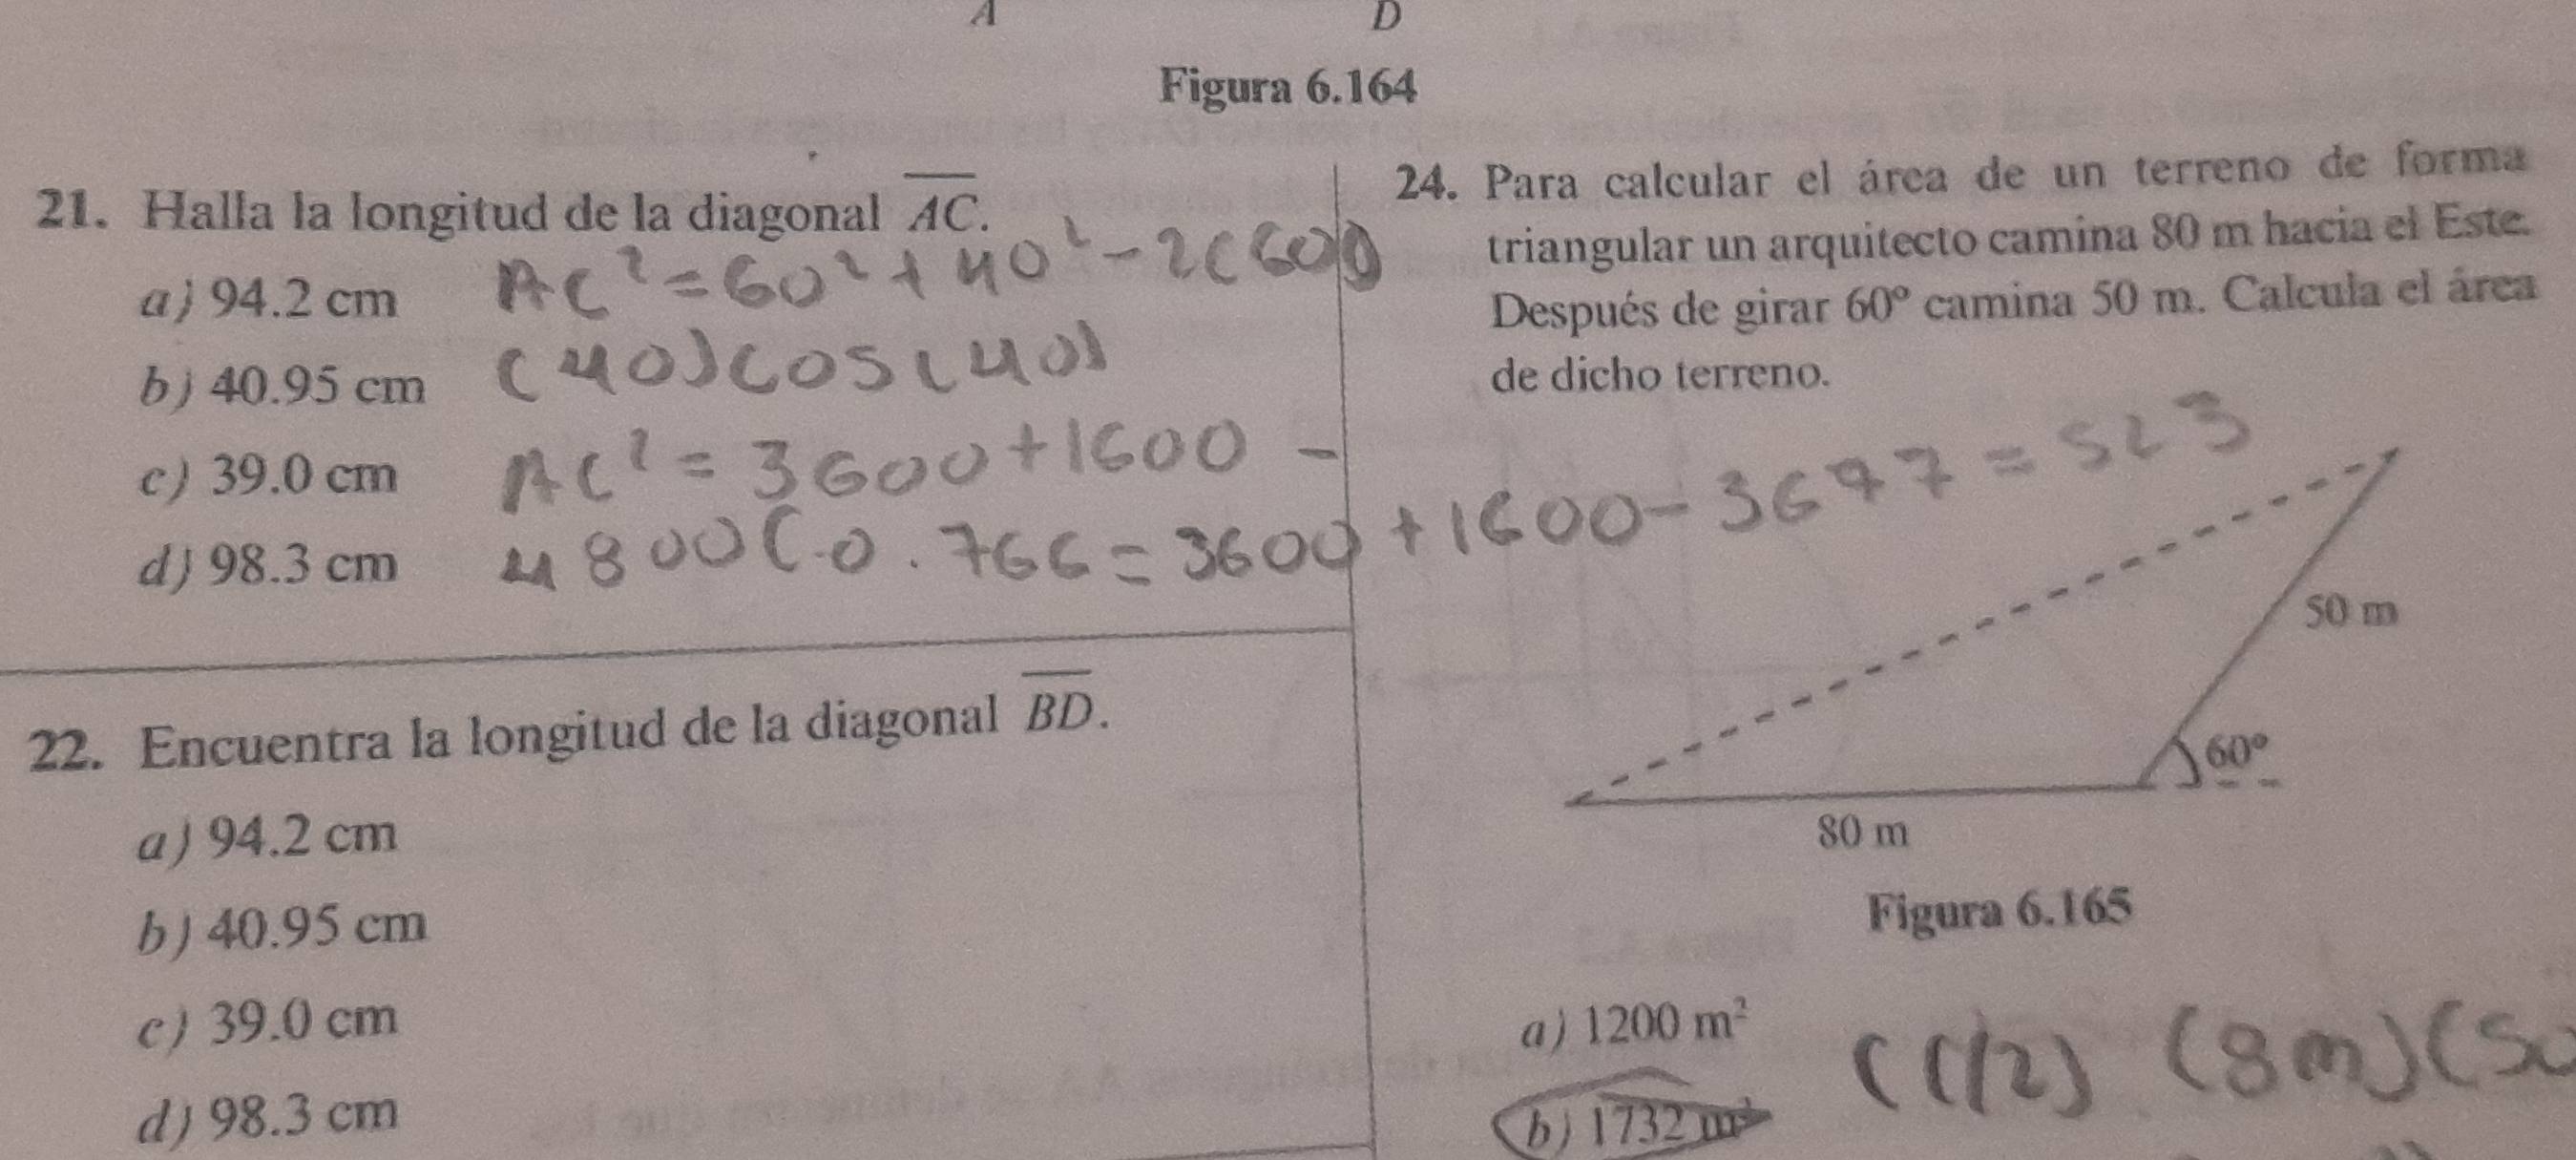 A D
Figura 6.164
21. Halla la longitud de la diagonal AC.
AC² = 60² + 40² - 2(60)
a) 94.2 cm
(40)cos(40)
b) 40.95 cm
AC² = 3600 + 1600 -
c) 39.0 cm
4800(-0.766 = 3600 + 1600 - 3677 = 523
d) 98.3 cm
22. Encuentra la longitud de la diagonal BD.
a) 94.2 cm
b) 40.95 cm
c) 39.0 cm
d) 98.3 cm
24. Para calcular el área de un terreno de forma
triangular un arquitecto camina 80 m hacia el Este.
Después de girar 60° camina 50 m. Calcula el área
de dicho terreno.
50 m
60°
80 m
Figura 6.165
a) 1200 m²
(1/2) (8m)(50
b) 1732 m²